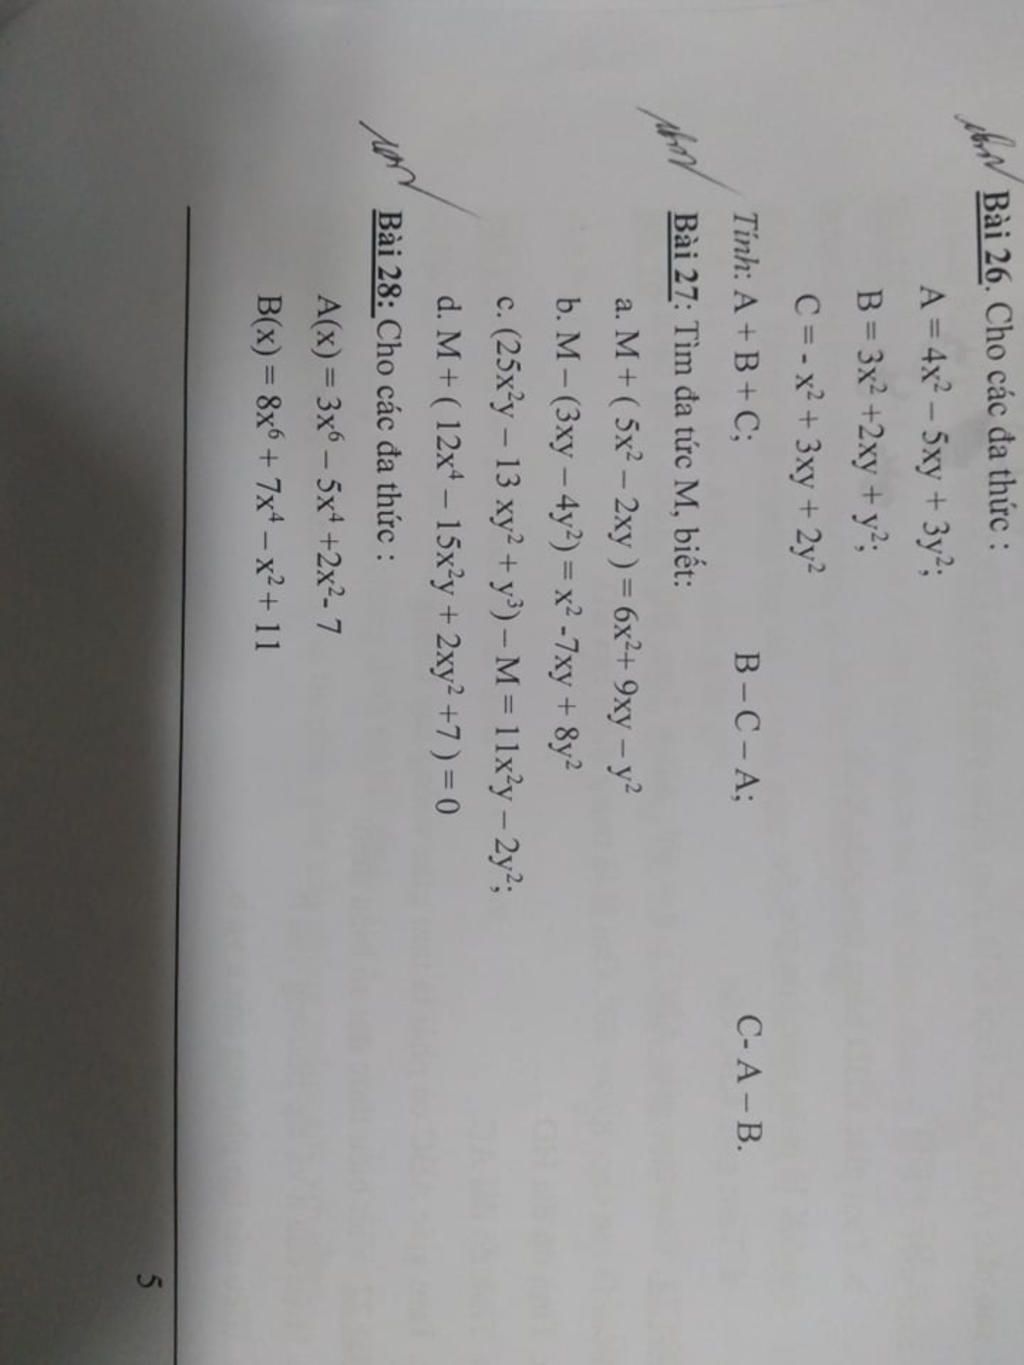 Bài 26. Cho các đa thức :
A = 4x² – 5xy + 3y²;
B = 3x² +2xy + y²;
C = - x² + 3xy + 2y²
Tính: A + B + C; B – C – A; C- A – B.
Bài 27: Tìm đa tức M, biết:
a. M + ( 5x² – 2xy ) = 6x²+ 9xy – y²
b. M – (3xy – 4y²) = x² -7xy + 8y²
c. (25x²y – 13 xy² + y³) – M = 11x²y – 2y²;
d. M + ( 12x⁴ – 15x²y + 2xy² +7 ) = 0
Bài 28: Cho các đa thức :
A(x) = 3x⁶ – 5x⁴ +2x²- 7
B(x) = 8x⁶ + 7x⁴ – x² + 11
5